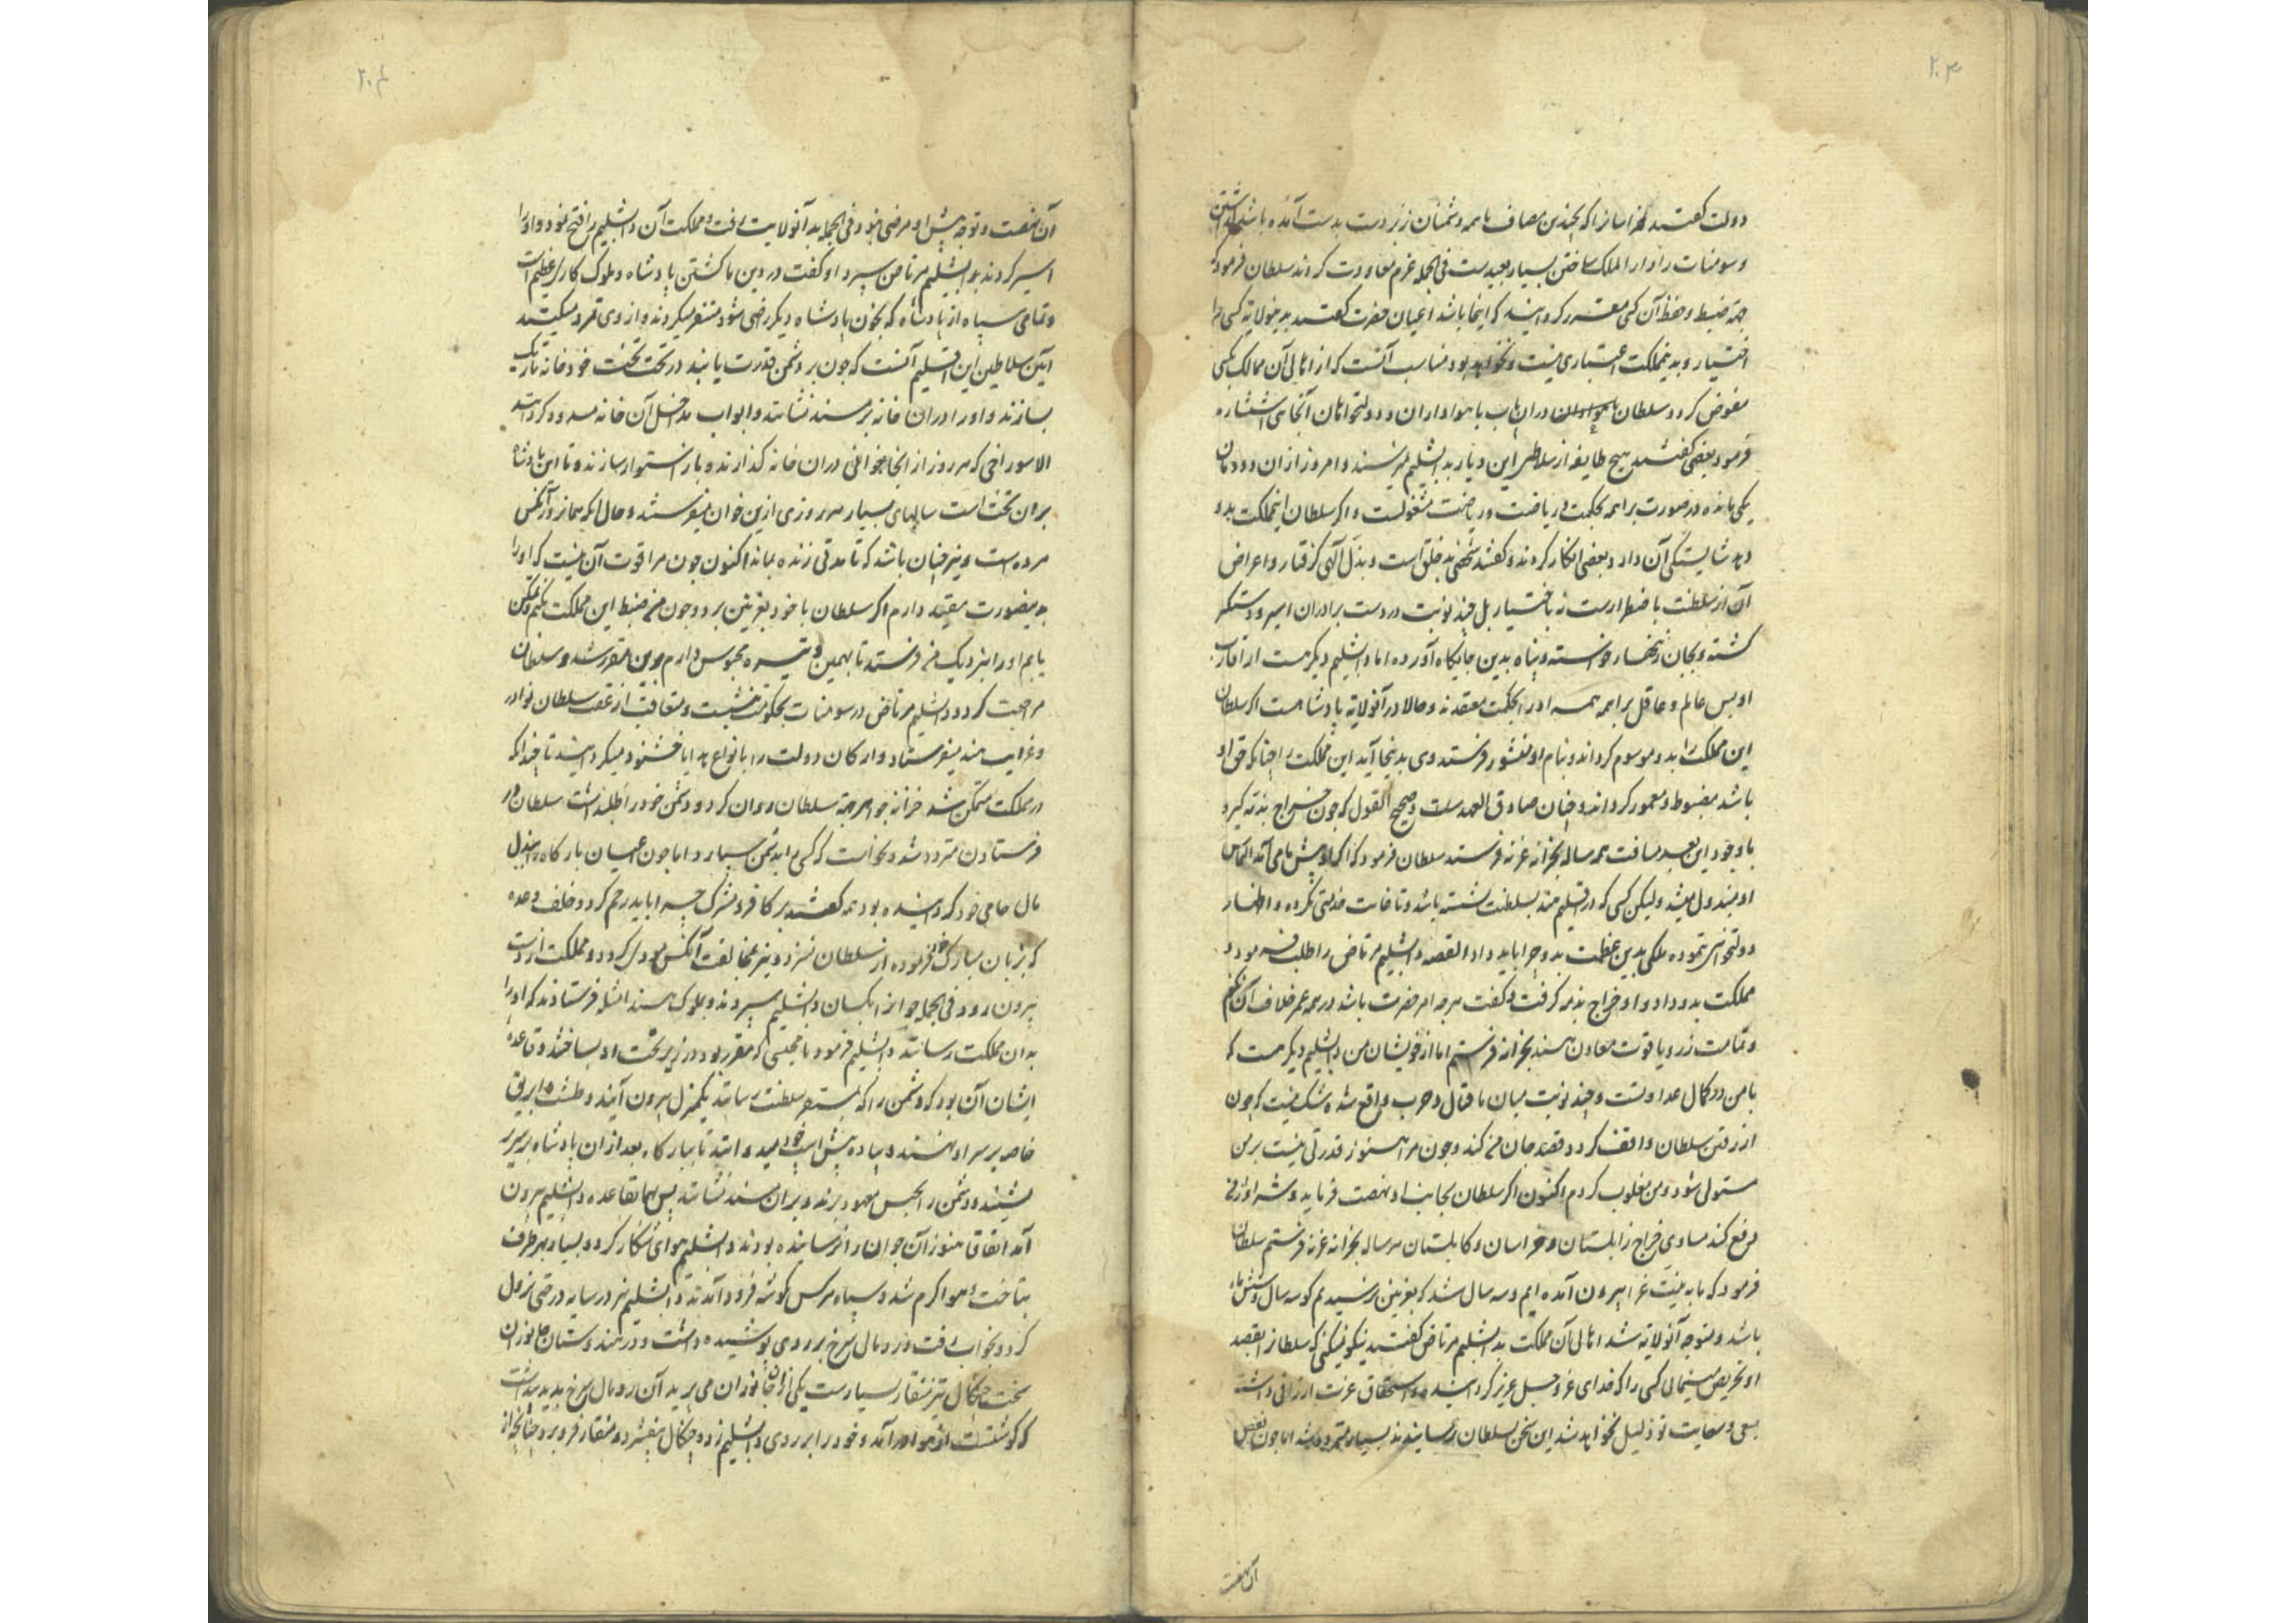 ۲۰۳
دولت گفتند خراسان را که بچندین مصاف با همه دشمنان زبردست بدست آمده باشد گذاشتن
و سومنات را دار الملک ساختن بسیار بعیدست فی الجمله عزم معاودت کردند سلطان فرمود که
جهة ضبط و حفظ آن کسی مقرر گردانید که اینجا باشد اعیان حضرت گفتند بدینولایة کسی را
اختیار و بدینمملکت اعتباری نیست و نخواهد بود مناسب آنست که از اهالی آن ممالک بکسی
مفوض گردد سلطان دران باب با هواداران و دولتخواهان آنجائی استشاره
فرمود بعضی گفتند هیچ طایفه از سلاطین این دیار به دابشلیم نمیرسند و امروز ازان دودمان
یکی مانده در صورت براهمه بحکمت و ریاضت مشغولست و اگر سلطان اینمملکت بدو
دهد شایستگی آن دارد و بعضی انکار کردند و گفتند شخصی بدخلق است و ببذل الهی گرفتار و اعراض
آن از سلطنت باضطرارست نه باختیار بل چند نوبت در دست برادران اسیر و دستگیر
گشته و بجان زنهار خواسته و پناه بدین جایگاه آورده اما دابشلیم دیگر هست از اقارب
او بس عالم و عاقل براهمه همه او را بحکمت معتقدند و حالا در آنولایة پادشاهست اگر سلطان
این مملکت را بدو موسوم گرداند و بنام او منشور فرستد وی بدینجا آید این مملکت را چنانکه حق او
باشد مضبوط و معمور گرداند و چنان صادق العهد ست و صحیح القول که چون خراج بذمه گیرد
با وجود این بعد مسافت همه ساله بخزانه غزنه فرستد سلطان فرمود که اگر او پیش ما می آمد التماس
او مبذول میشد ولیکن کسی که در اقلیم هند بسلطنت نشسته باشد و تا غایت خدمتی نکرده و اظهار
دولتخواهی ننموده ملکی بدین عظمت بدو چرا باید داد القصه دابشلیم مرتاض را طلب فرمود و
مملکت بدو داد و او خراج بذمه گرفت و گفت هر چه امر حضرت باشد در همه عمر خلاف آن نکنم
و تمامت زر و یاقوت معادن هند بخزانه فرستم اما از خویشان من دابشلیم دیگر هست که
با من در کمال عداوتست و چند نوبت میان ما قتال و حرب واقع شده شک نیست که چون
از رفتن سلطان واقف گردد قصد جان من کند و چون مرا هنوز قدرتی نیست بر من
مستولی شود و من مغلوب گردم اکنون اگر سلطان بجانب او نهضت فرماید و شر او از من
دفع کند مساوی خراج زابلستان و خراسان و کابلستان هر ساله بخزانه غزنه فرستم سلطان
فرمود که ما به نیت غزا بیرون آمده ایم و سه سال شد که بغزنین نرسیدیم گو سه سال و شش ماه
باشد و متوجه آنولایة شد اهالی آن مملکت به دابشلیم مرتاض گفتند نیکو نمیکنی که سلطانرا بقصد
او تحریض مینمائی کسی را که خدای عز و جل عزیز گردانیده و استحقاق عزت ارزانی داشته
بسعی و سعایت تو ذلیل نخواهد شد این سخن بسلطان رسانیدند بسیار متردد شد اما چون بعضی
آن نهضت
۲۰۴
آن نهضت و توجه پیش او مرضی نبود فی الجمله بدآنولایت رفت و مملکت آن دابشلیم را فتح نمود و او را
اسیر کردند بدابشلیم مرتاض سپرد او گفت در دین ما کشتن پادشاه و ملوک کاری عظیم است
و تمامی سپاه از پادشاه که بخون پادشاه دیگر راضی شود متنفر میگردند و از وی تمرد میکنند
آیین سلاطین این اقلیم آنست که چون بر دشمن قدرت یابند در تحت تخت خود خانه تاریک
بسازند و او را دران خانه بر مسند نشانند و ابواب مداخل آن خانه مسدود گردانند
الا سوراخی که هر روز از آنجا خوانی دران خانه گذارند و باز استوار سازند و تا این پادشاه
بران تخت است سالهای بسیار هر روزی ازین خوان میفرستند و حال آنکه همانروز آنکس
مرده است و نیز چنان باشد که تا مدتی زنده بماند اکنون چون مرا قوت آن نیست که او را
بدینصورت مقید دارم اگر سلطان با خود بغزنین برد و چون من ضبط این مملکت بکنم و تمکین
یابم او را بنزدیک من فرستد تا بهمین وتیره محبوس دارم برین مقرر شد و سلطان
مراجعت کرد و دابشلیم مرتاض در سومنات بحکومت بنشست و متعاقب از عقب سلطان نوادر
و غرایب هند میفرستاد و ارکان دولت را بانواع هدایا خشنود میگردانید تا چندانکه
در مملکت متمکن شد خزانه جواهر جهة سلطان روان کرد و دشمن خود را طلب داشت سلطان در
فرستادن متردد شد و نخواست که کسی را بدشمن بسپارد اما چون اعیان بارگاه را ببذل
مال حامی خود گردانیده بود همه گفتند بر کافر مشرک چه را باید رحم کرد و خلف وعده
که بزبان مبارک خود فرموده از سلطان نسزد و نیز مخالفت آنکس مودی گردد و مملکت از دست
بیرون رود فی الجمله جوانرا بکسان دابشلیم سپردند و بملوک هند امثله فرستادند که او را
بدان مملکت رسانند دابشلیم فرمود تا محبسی که مقرر بود در زیر تخت او بساختند و قاعده
ایشان آن بود که دشمن را که بمستقر سلطنت رسانند یکمنزل بیرون آیند و طشت و ابریق
خاصه بر سر او نهند و پیاده پیش اسب خود میدوانند تا ببارگاه بعد ازان پادشاه بر سریر
نشیند و دشمن را بحبس معهود برند و بران مسند نشانند پس بهمان قاعده دابشلیم بیرون
آمد اتفاقا هنوز آن جوان را نرسانیده بودند دابشلیم هوای شکار کرد و بسیار بهر طرف
بتاخت هوا گرم شد و سپاه هر کس گوشه فرود آمدند دابشلیم نیز در سایه درختی نزول
کرد و بخواب رفت و رومال سرخ بر روی پوشیده داشت و در هندوستان جانوران
سخت چنگال تیز منقار بسیارست یکی از آن جانوران می پرید آن رومال سرخ بدید پنداشت
که گوشتست از هوا در آمد و خود را بر روی دابشلیم زده چنگال بیفشرد و منقار فرو برد چنانچه از